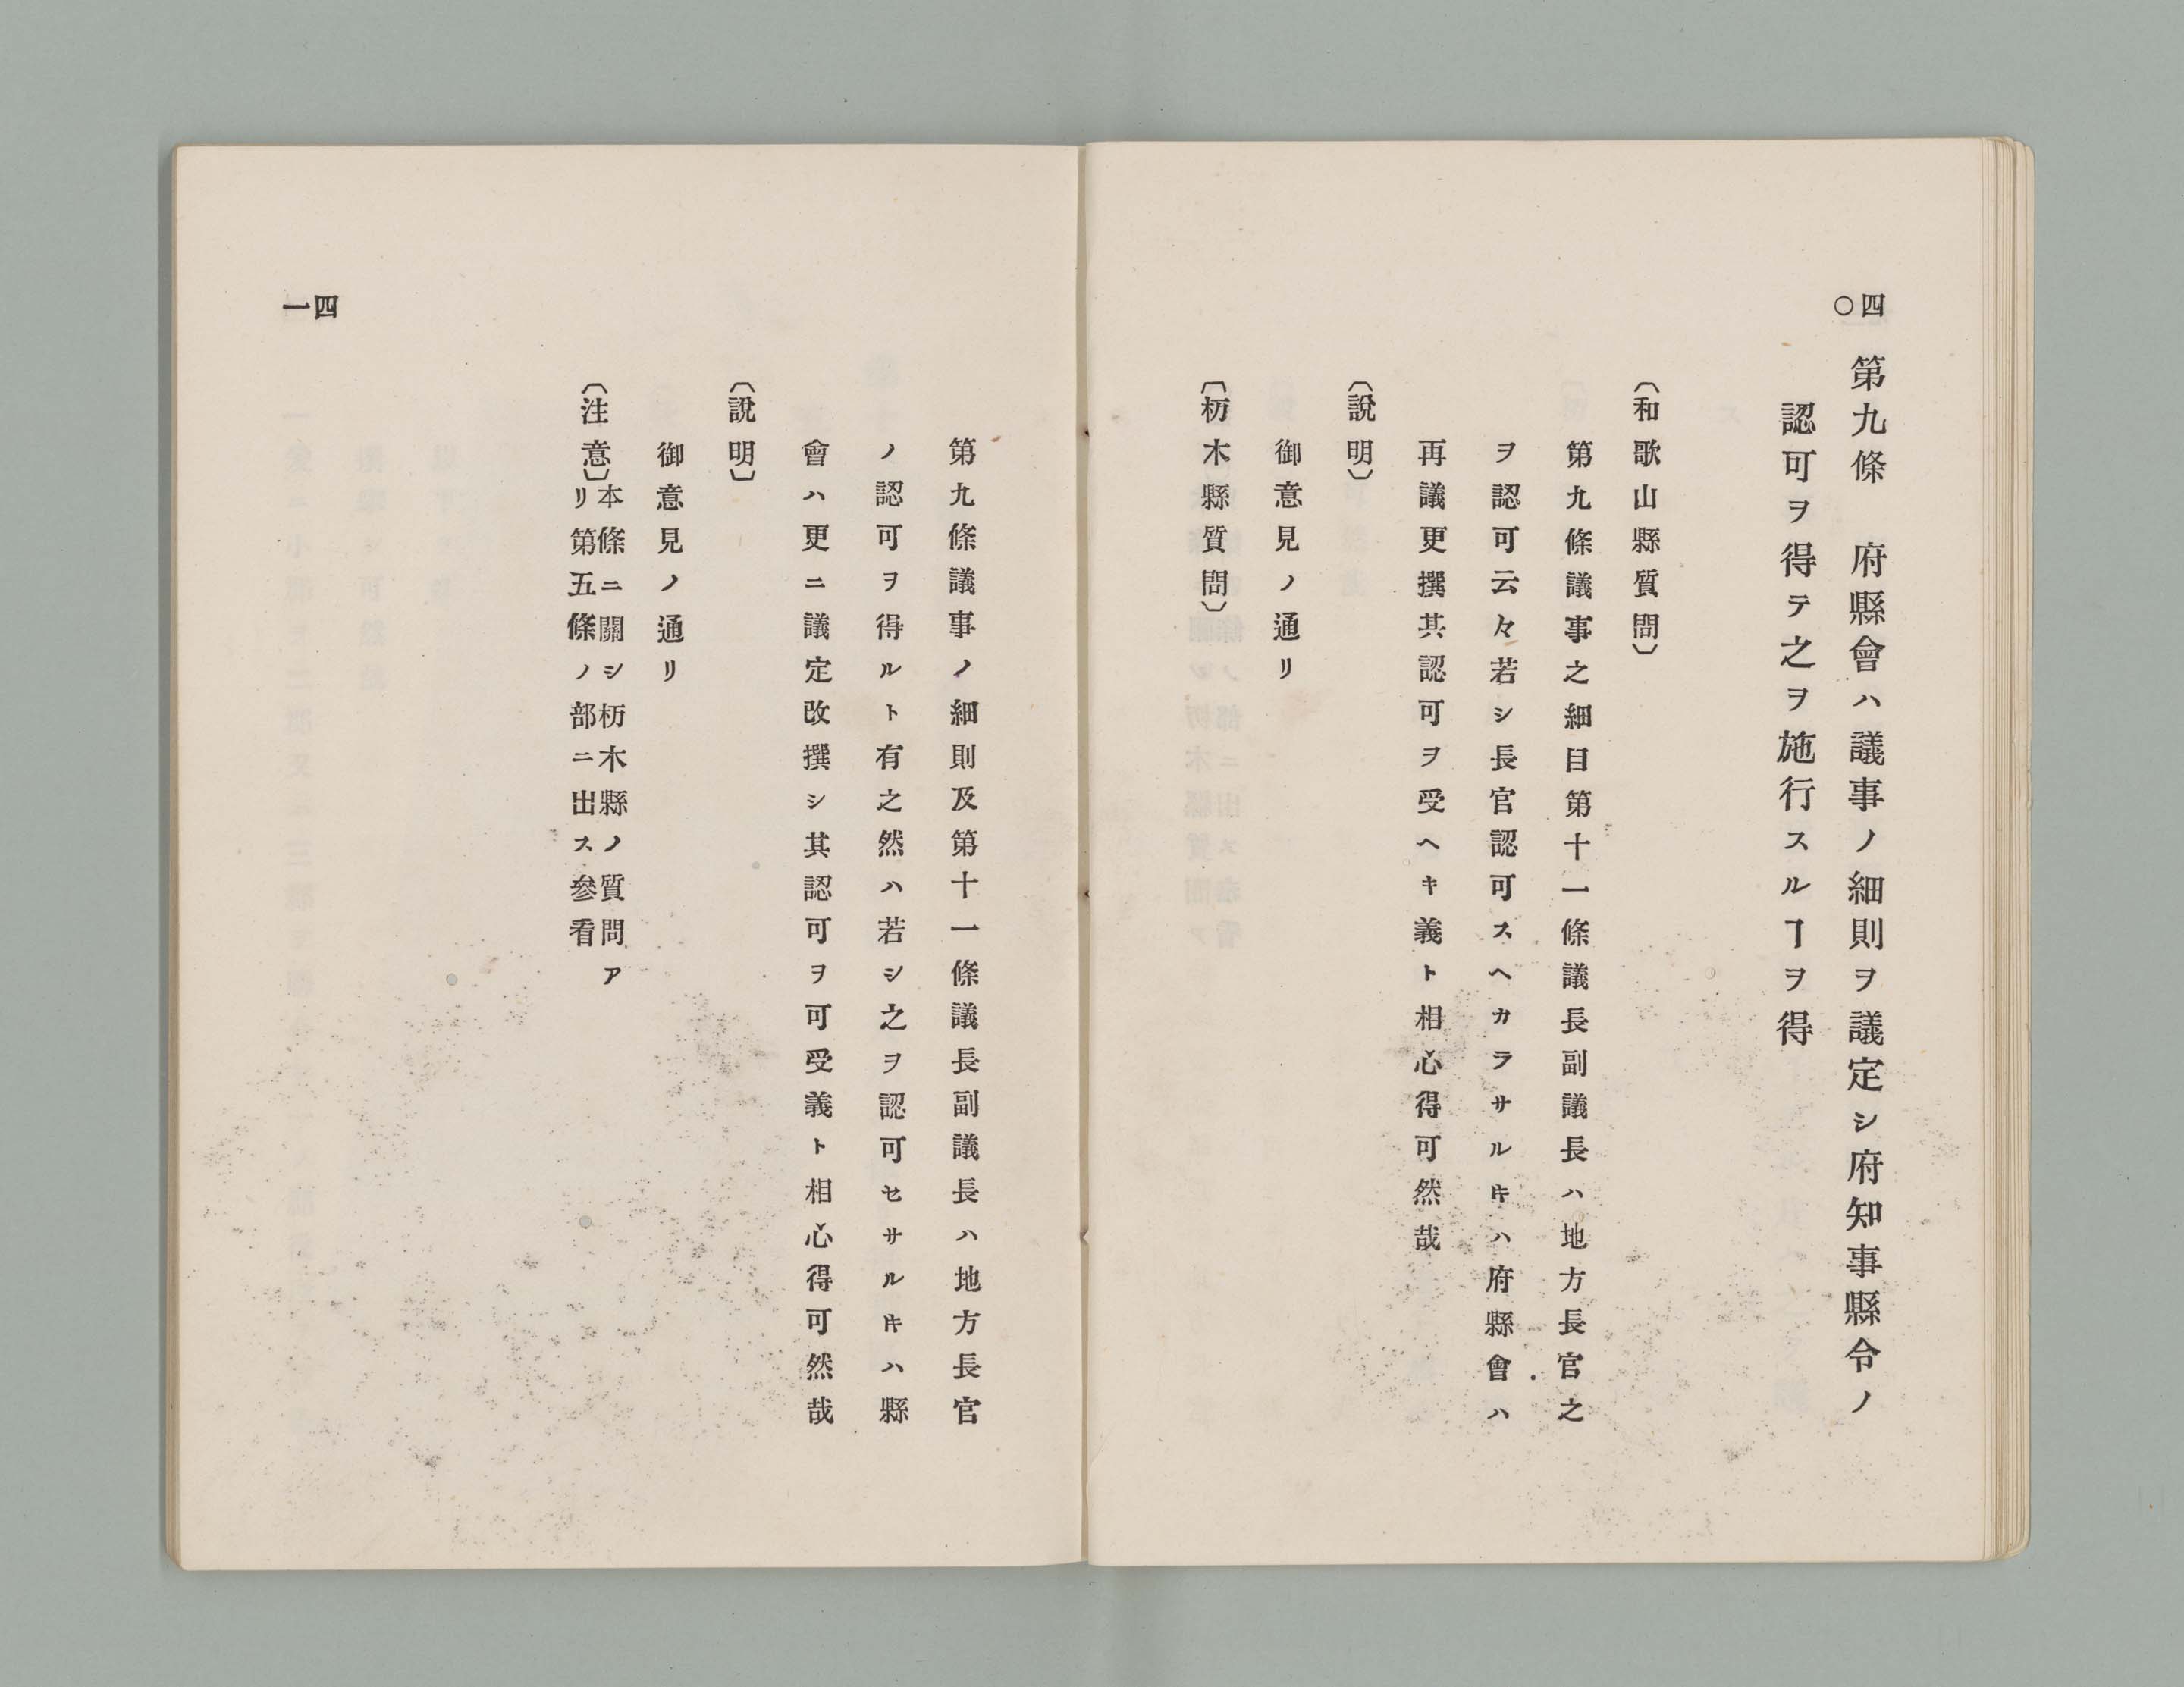 四〇
第九條　府縣會ハ議事ノ細則ヲ議定シ府知事縣令ノ
認可ヲ得テ之ヲ施行スルヿヲ得
〔和歌山縣質問〕
第九條議事之細目第十一條議長副議長ハ地方長官之
ヲ認可云々若シ長官認可スヘカラサルキハ府縣會ハ
再議更撰其認可ヲ受ヘキ義ト相心得可然哉
〔說明〕
御意見ノ通リ
〔栃木縣質問〕
四一
第九條議事ノ細則及第十一條議長副議長ハ地方長官
ノ認可ヲ得ルト有之然ハ若シ之ヲ認可セサルキハ縣
會ハ更ニ議定改撰シ其認可ヲ可受義ト相心得可然哉
〔說明〕
御意見ノ通リ
〔注意〕本條ニ關シ栃木縣ノ質問ア
リ第五條ノ部ニ出ス參看